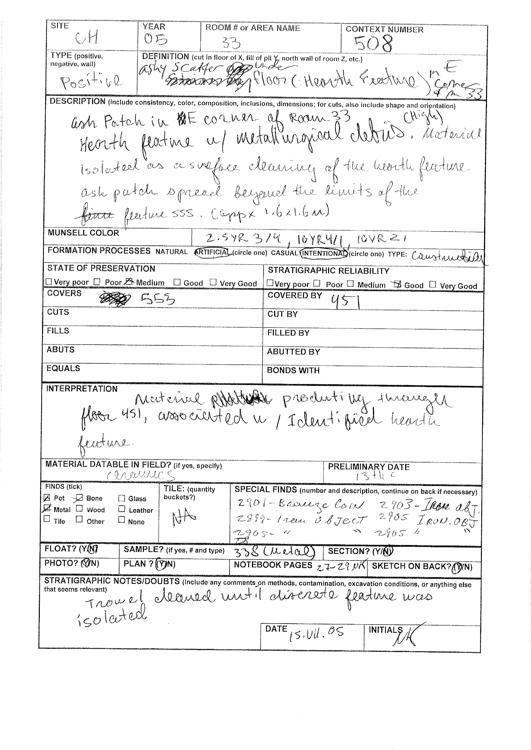 SITE CH YEAR 05 ROOM # or AREA NAME 33 CONTEXT NUMBER 508
TYPE (positive, negative, wall) Positive
DEFINITION (cut in floor of X, fill of pit Y, north wall of room Z, etc.)
ashy Scatter under floor (Hearth Feature) in E corner of rm 33
DESCRIPTION (include consistency, color, composition, inclusions, dimensions; for cuts, also include shape and orientation)
ash Patch in E corner of Room 33
Hearth feature w/ metallurgical debris. (High) Material
isolated as a surface cleaning of the hearth feature.
ash patch spread beyond the limits of the
feature 555. (appx 1.6x1.6m)
MUNSELL COLOR 2.5YR 3/4, 10YR4/1, 10YR 2/1
FORMATION PROCESSES NATURAL ARTIFICIAL (circle one) CASUAL INTENTIONAL (circle one) TYPE:
STATE OF PRESERVATION STRATIGRAPHIC RELIABILITY
Very poor Poor Medium Good Very Good Very poor Poor Medium Good Very Good
COVERS 553 COVERED BY 451
CUTS CUT BY
FILLS FILLED BY
ABUTS ABUTTED BY
EQUALS BONDS WITH
INTERPRETATION
Material protruding through
floor 451, associated w/ Identified hearth
feature.
MATERIAL DATABLE IN FIELD? (if yes, specify) ceramics
PRELIMINARY DATE 13th c
FINDS (tick)
Pot Bone Glass
Metal Wood Leather
Tile Other None
TILE: (quantity buckets?) NA
SPECIAL FINDS (number and description, continue on back if necessary)
2901 - Bronze Coin 2903 - Iron obj.
2899 - Iron Object 2905 Iron. OBJ
2905 - " 2905 " "
FLOAT? (Y/N) SAMPLE? (if yes, # and type) 338 (Metal) SECTION? (Y/N)
PHOTO? (Y/N) PLAN? (Y/N) NOTEBOOK PAGES 27-29 NK SKETCH ON BACK? (Y/N)
STRATIGRAPHIC NOTES/DOUBTS (Include any comments on methods, contamination, excavation conditions, or anything else that seems relevant)
Trowel cleaned until discrete feature was
isolated
DATE 15.VII.05 INITIALS NK